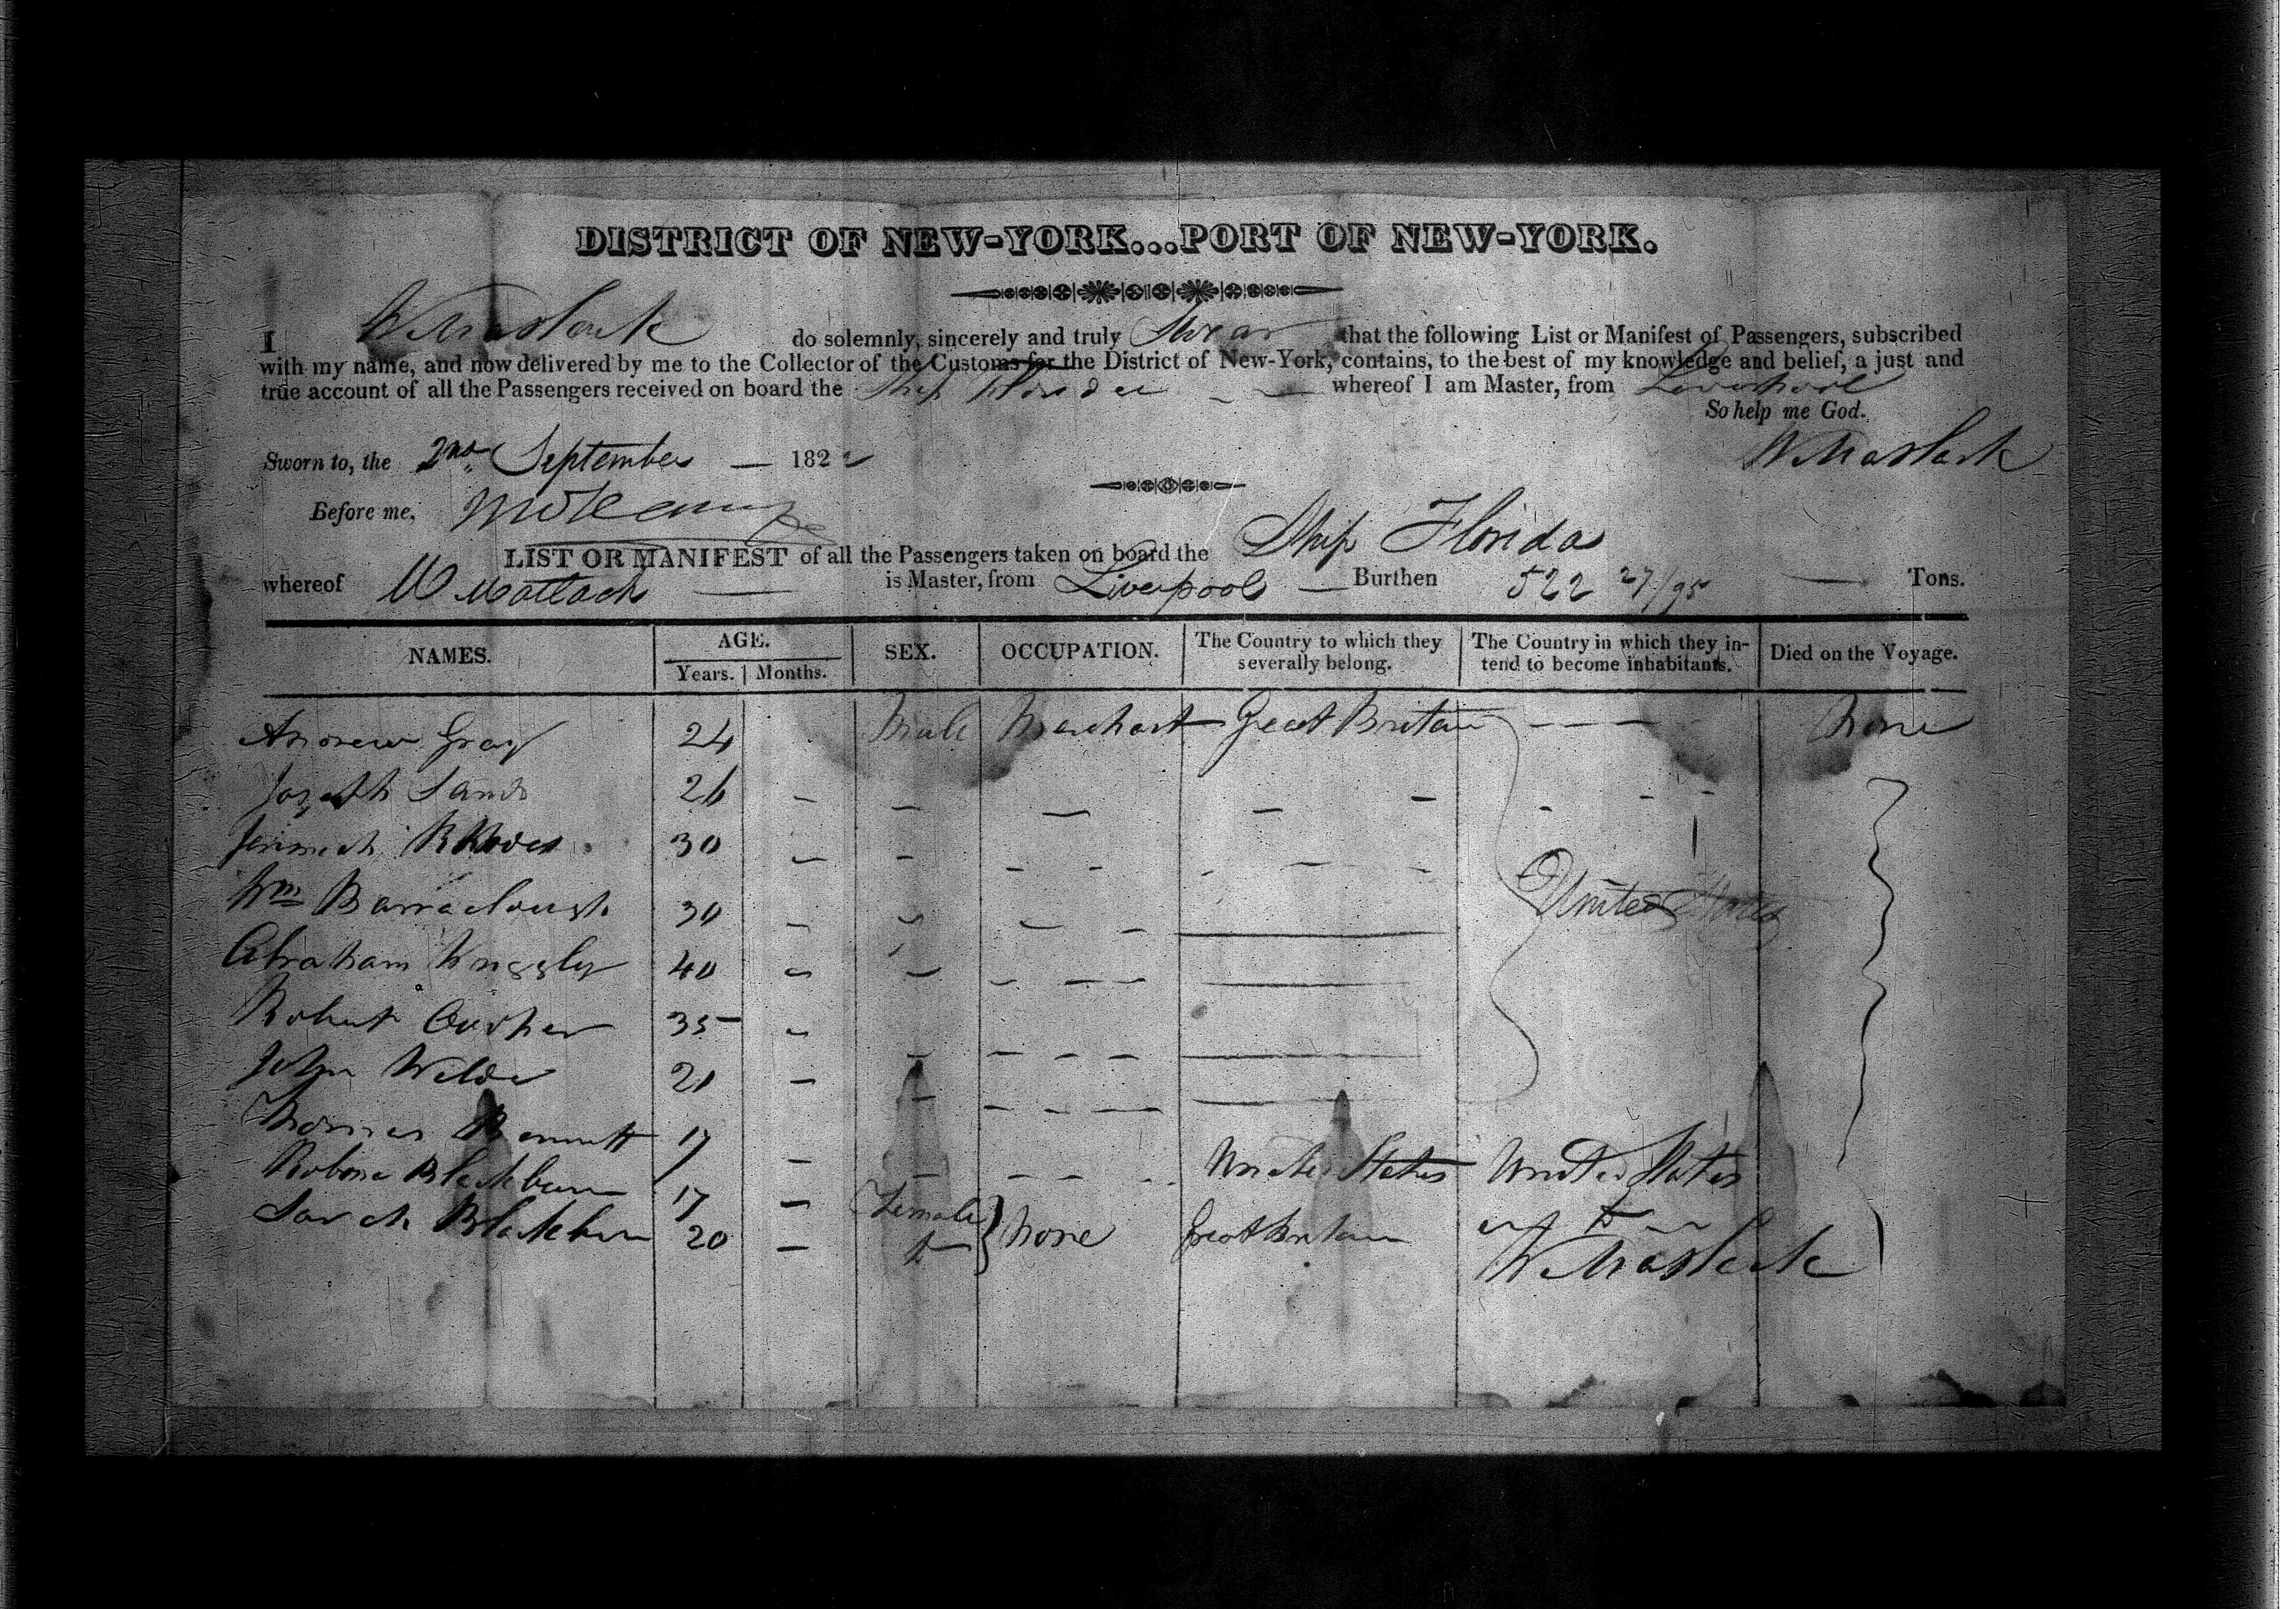 DISTRICT OF NEW-YORK...PORT OF NEW-YORK.
I W Matlack do solemnly, sincerely and truly Swear that the following List or Manifest of Passengers, subscribed
with my name, and now delivered by me to the Collector of the Customs for the District of New-York, contains, to the best of my knowledge and belief, a just and
true account of all the Passengers received on board the Ship Florida whereof I am Master, from Liverpool
So help me God.
W Matlack
Sworn to, the 2nd September — 1822
Before me,
LIST OR MANIFEST of all the Passengers taken on board the Ship Florida
whereof W Matlack — is Master, from Liverpool — Burthen 522 27/95 — Tons.
NAMES. AGE. Years. Months. SEX. OCCUPATION. The Country to which they severally belong. The Country in which they intend to become inhabitants. Died on the Voyage.
Andrew Gray 24 Male Merchant Great Britain - - - None
Joseph Sands 26 - - - - - - - -
Jerimiah Rhodes 30 - - - - - - -
Wm Barraclough 30 - - - - — United States
Abraham 40 - - - - - —
Robert 35 - - - - - —
John Wilde 21 - - - - - - —
Thomas Bennett 17 - - - - - United States United States
Blackburn 17 - Female } None Great Britain
Sarah Blackburn 20 - Do Do
W Matlack